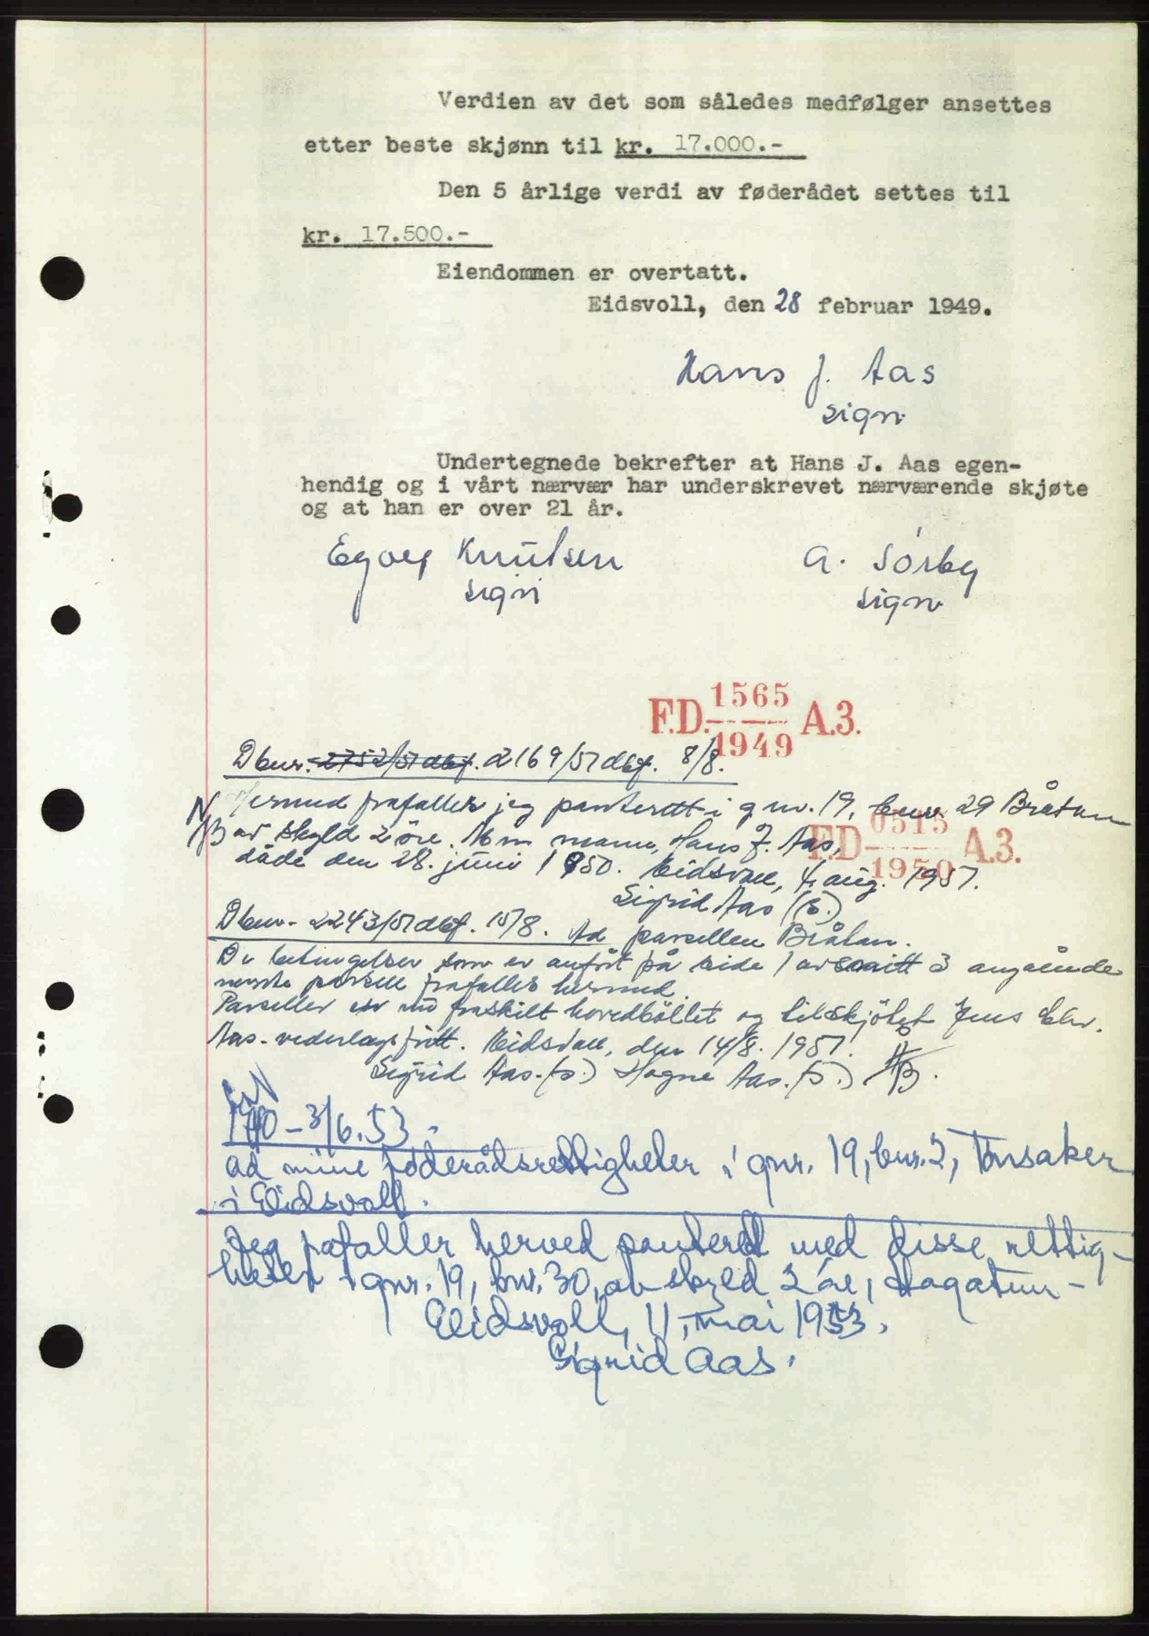 Verdien av det som således medfølger ansettes
etter beste skjønn til kr. 17.000.-
Den 5 årlige verdi av føderådet settes til
kr. 17.500.-
Eiendommen er overtatt.
Eidsvoll, den 28 februar 1949.
Hans J. Aas
sign
Undertegnede bekrefter at Hans J. Aas egen-
hendig og i vårt nærvær har underskrevet nærværende skjøte
og at han er over 21 år.
Knutsen A. Sörby
sign sign
F.D. 1565 / 1949 A.3.
Dbnr. 2752/51 dbf. 2169/51 dbf. 8/8.
Hermed frafaller jeg panterett i gnr. 19, bnr. 29 Bråtan
NB av skyld 2 öre. Min mann, Hans J. Aas,
F.D. 0515 / 1950 A.3.
döde den 28. juni 1950. Eidsvoll, 4 aug. 1951.
Sigrid Aas (s.)
Dbnr. 2243/51 dbf. 15/8. Ad parsellen Bråtan.
De betingelser som er anfört på side 1 avsnitt 3 angående
nevnte parsell frafalles hermed.
Parsellen er nu fraskilt hovedböllet og tilskjötet Jens Chr.
Aas. vederlagsfritt. Eidsvoll, den 14/8. 1951.
Sigrid Aas. (s.) Hogne Aas. (s.) NB.
1710 - 3/6.53.
ad mine föderådsrettigheter i gnr. 19, bnr. 2, Tönsaker
i Eidsvoll.
Jeg frafaller herved panterett med disse rettig-
heter i gnr. 19, bnr. 30, av skyld 2 öre, Hagatun -
Eidsvoll, 11, mai 1953.
Sigrid Aas.